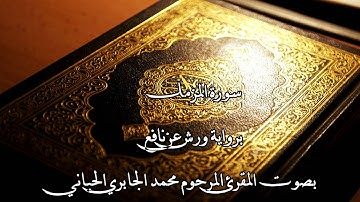 سورة المزمل
برواية ورش عن نافع
بصوت المقرئ المرحوم محمد الجابري الحياني